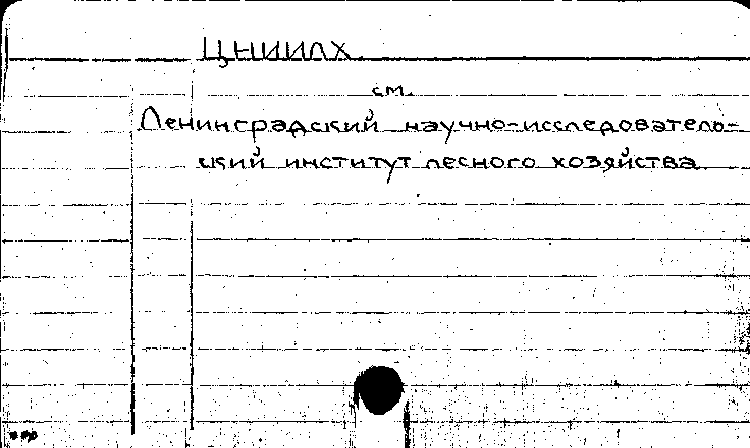 ЦНИИЛХ
см.
Ленинградский научно-исследователь-
ский институт лесного хозяйства